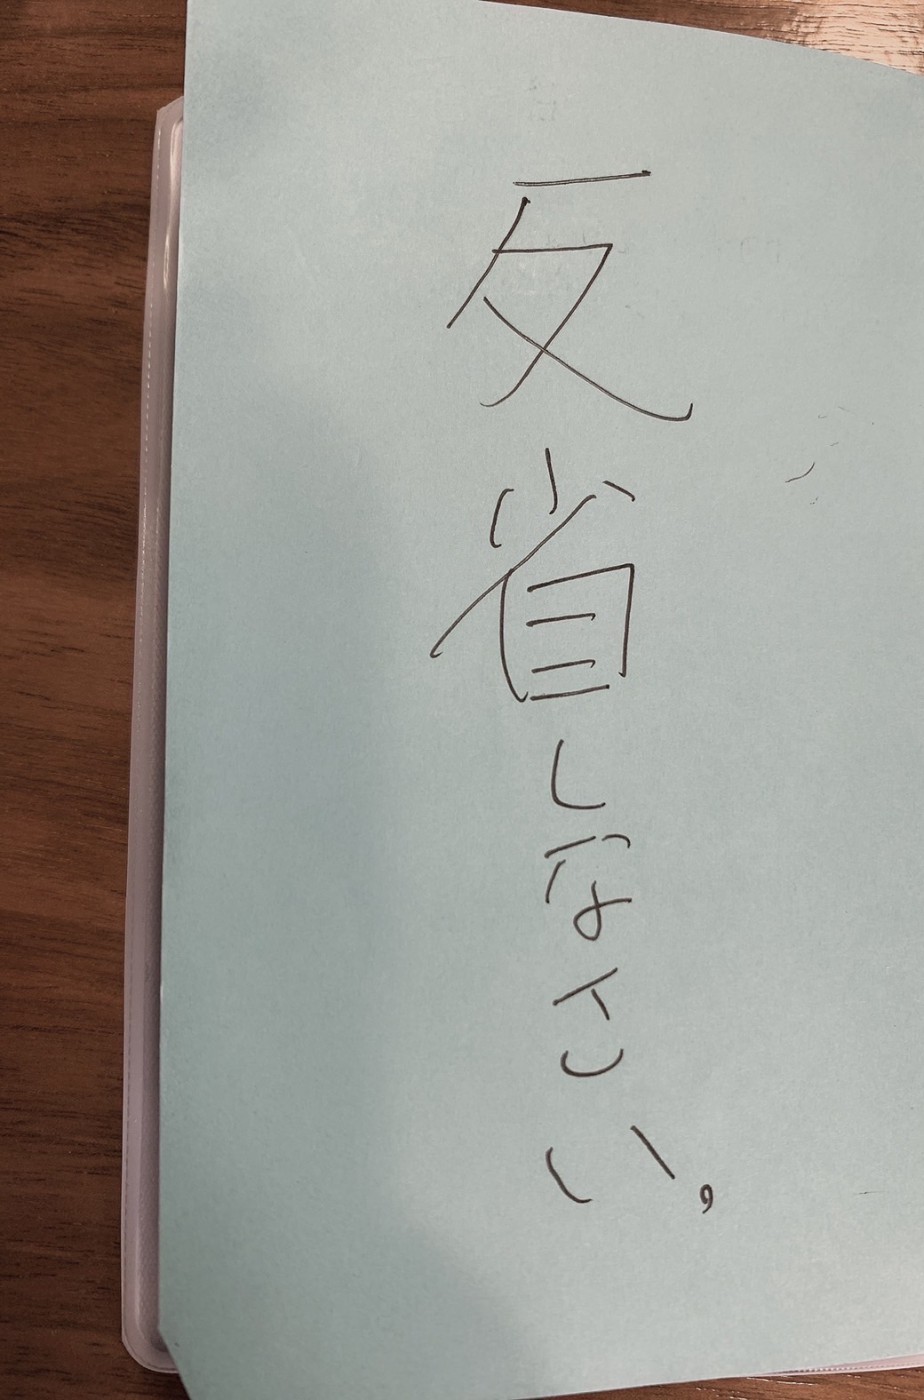 反省しなさい。